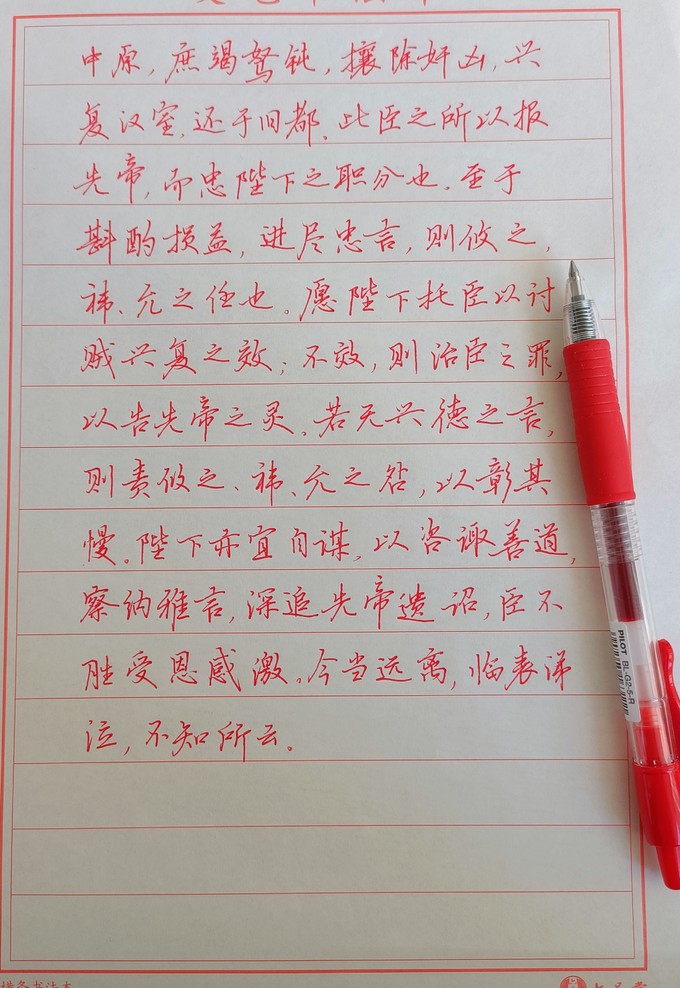 中原，庶竭驽钝，攘除奸凶，兴
复汉室，还于旧都。此臣之所以报
先帝，而忠陛下之职分也。至于
斟酌损益，进尽忠言，则攸之、
祎、允之任也。愿陛下托臣以讨
贼兴复之效；不效，则治臣之罪，
以告先帝之灵。若无兴德之言，
则责攸之、祎、允之咎，以彰其
慢。陛下亦宜自谋，以咨诹善道，
察纳雅言，深追先帝遗诏，臣不
胜受恩感激。今当远离，临表涕
泣，不知所云。
PILOT BL-G2-5-R